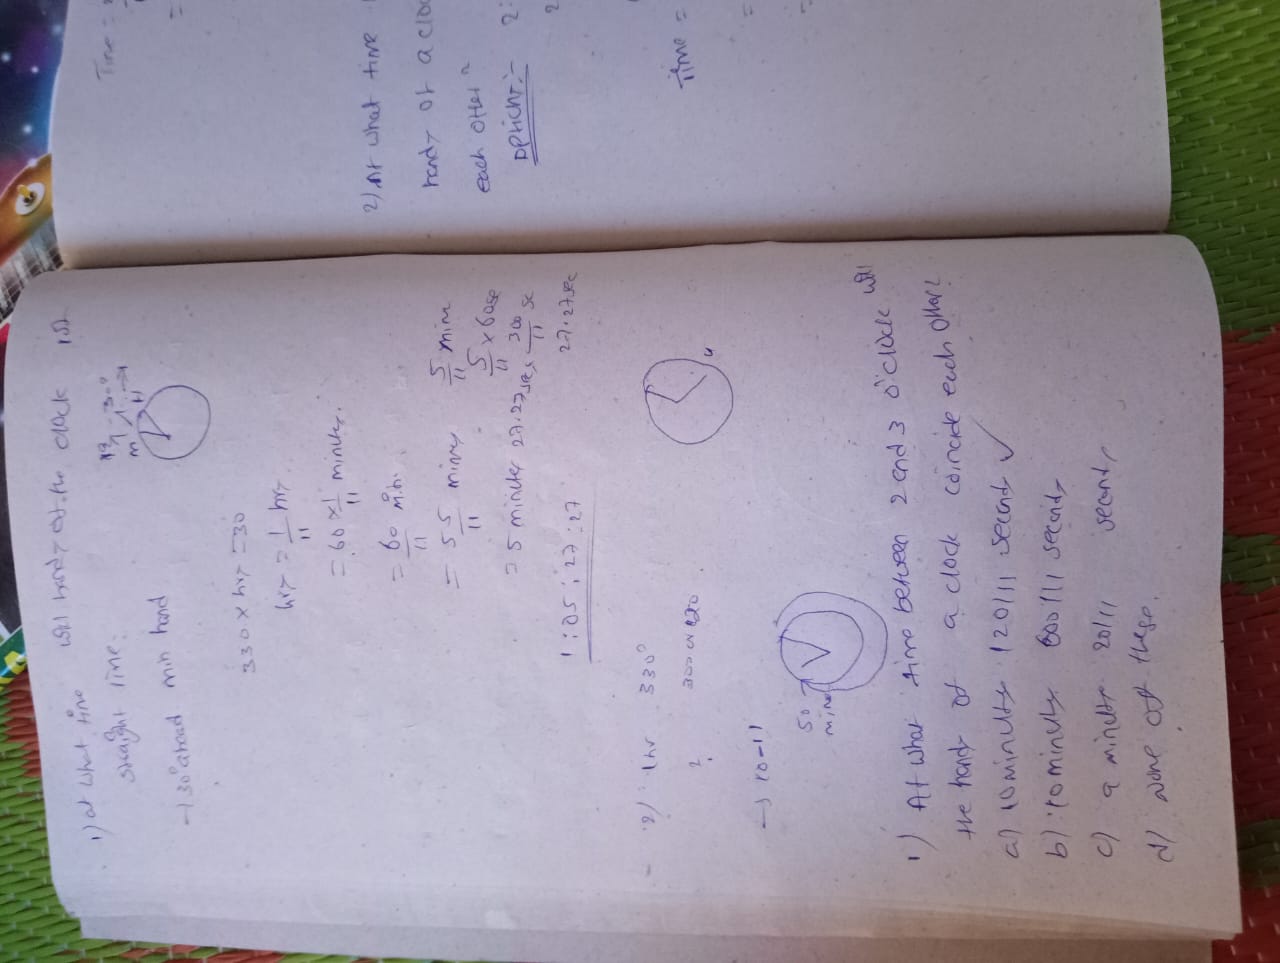 1) at what time will hands of the clock 1st
straight line.
→ 30° ahead min hand
330 x hrs = 30
hrs = 1/11 hrs.
= 60 x 1/11 minutes.
= 60/11 min.
= 5 5/11 mins
5/11 mins
5/11 x 60 sec
= 5 minutes 27.27 sec
300/11 sec
27.27 sec
1 : 05 : 27 : 27
2) 1 hr 330°
?
→ 10-11
50 mins
1) At what time between 2 and 3 o'clock will
the hands of a clock coincide each other?
a) 10 minutes 120/11 seconds ✓
b) 10 minutes 600/11 seconds
c) a minutes 20/11 seconds
d) None of these.
Time =
=
2) At what time
hands of a cloc
each other?
2:
2
Time =
=
=